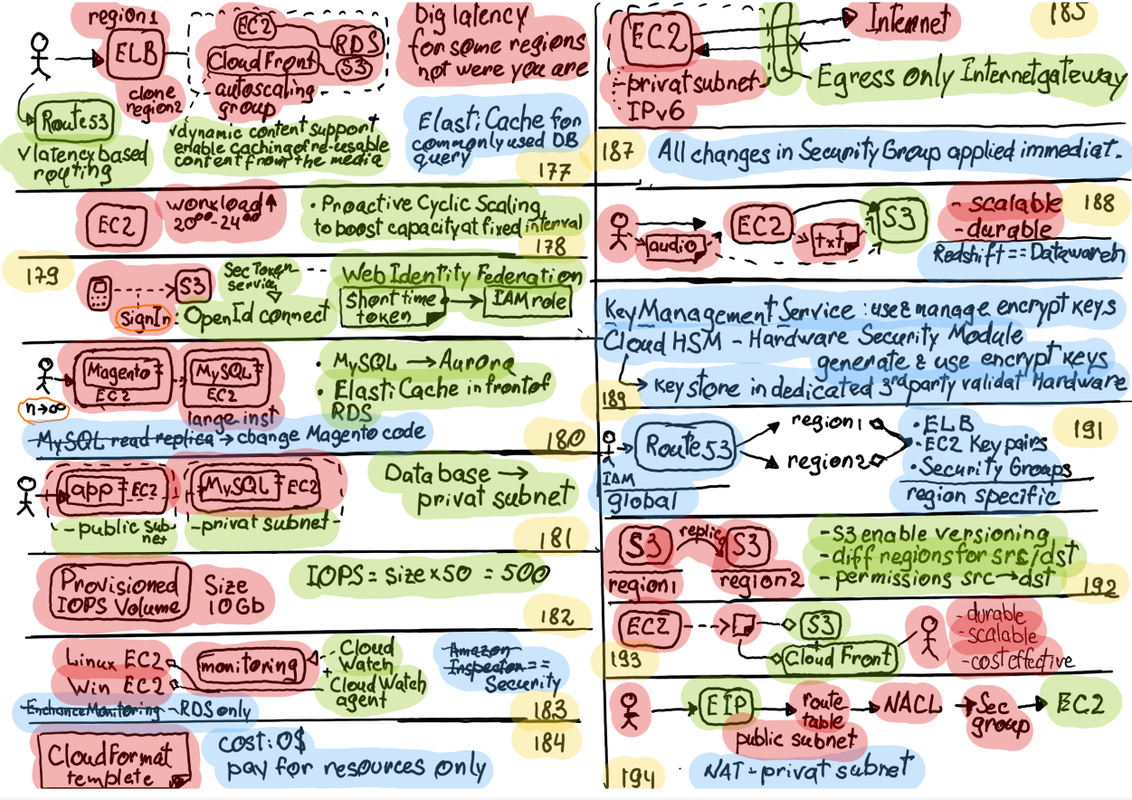 region1
ELB
clone
region2
EC2
RDS
S3
Cloud Front
autoscaling
group
Big latency
for some regions
not were you are
Route53
√latency based
routing
√dynamic content support
enable caching of re-usable
content from the media
ElastiCache for
commonly used DB
query
177
EC2
workload↑
20⁰⁰-24⁰⁰
• Proactive Cyclic Scaling
to boost capacity at fixed interval
178
179
S3
SignIn
Sec Token
service
OpenId connect
Web Identity Federation
Short time
token
IAM role
Magento
EC2
MySQL
EC2
large inst
n→∞
• MySQL → Aurora
• ElastiCache in front of
RDS
MySQL read replica → change Magento code
180
app EC2
MySQL EC2
-public sub
net-
-privat subnet-
Database →
privat subnet
181
Provisioned
IOPS Volume
Size
10Gb
IOPS = Size × 50 = 500
182
Linux EC2
Win EC2
monitoring
Cloud
Watch
+
CloudWatch
agent
Amazon
Inspector ==
Security
Enchance Monitoring - RDS only
183
CloudFormat
template
cost: 0$
pay for resources only
184
EC2
-privat subnet
IPv6
Internet
185
Egress only Internet gateway
187
All changes in Security Group applied immediat.
audio
EC2
txt
S3
- scalable
- durable
188
Redshift == Datawareh
Key Management Service : use & manage encrypt keys
Cloud HSM - Hardware Security Module
generate & use encrypt keys
→ key store in dedicated 3rd party validat Hardware
189
IAM
global
Route53
region1
region2
• ELB
• EC2 Key pairs
• Security Groups
region specific
191
S3
region1
replic
S3
region2
- S3 enable versioning
- diff regions for src/dst
- permissions src → dst
192
EC2
S3
Cloud Front
- durable
- scalable
- cost effective
193
EIP
route
table
public subnet
NACL
Sec
group
EC2
194
NAT - privat subnet